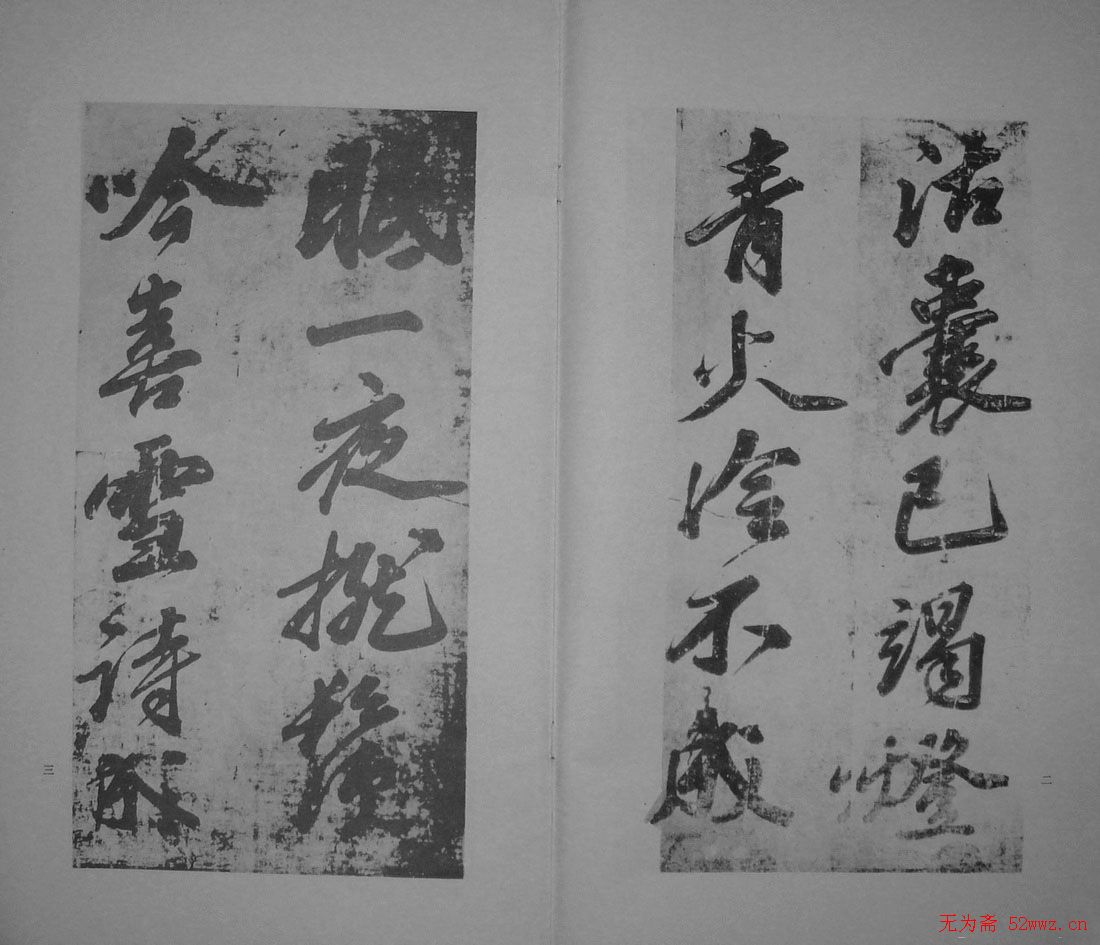 沽囊已竭燈
青火冷不
眠一夜撚鬚
吟喜雪詩
三
二
无为斋 52wwz.cn